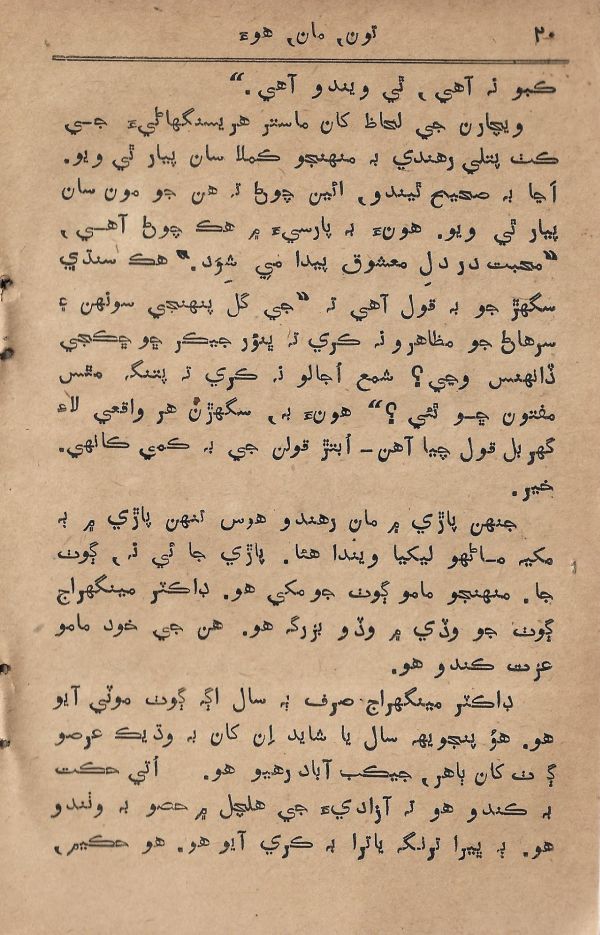 ٢٠ تون، مان، هوءَ
ڪبو نہ آهي، ٿي ويندو آهي.“
ويچارن جي لحاظ کان ماستر هريسنگهاڻيءَ جي
ڪٽ پتلي رهندي بہ منهنجو ڪملا سان پيار ٿي ويو.
اڃا بہ صحيح ٿيندو، ائين چوڻ تہ هن جو مون سان
پيار ٿي ويو. هونءَ بہ پارسيءَ ۾ هڪ چوڻ آهي،
”محبت در دلِ معشوق پيدا مي شِوَد.“ هڪ سنڌي
سگهڙ جو بہ قول آهي تہ ”جي گل پنهنجي سونهن ۽
سرهاڻ جو مظاهرو نہ ڪري تہ ڀنؤر جيڪر ڇو ڇڪجي
ڏانهنس وڃي؟ شمع اُجالو نہ ڪري تہ پتنگہ مٿس
مفتون ڇو ٿئي؟“ هونءَ بہ، سگهڙن هر واقعي لاءِ
گهربل قول چيا آهن۔ اُبتڙ قولن جي بہ ڪمي ڪانهي.
خير.
جنهن پاڙي ۾ مان رهندو هوس تنهن پاڙي ۾ ٻہ
مکيہ ماڻهو ليکيا ويندا هئا. پاڙي جا ئي نہ، ڳوٺ
جا. منهنجو مامو ڳوٺ جو مکي هو. ڊاڪٽر مينگهراج
ڳوٺ جو وڏي ۾ وڏو بزرگہ هو. هن جي خود مامو
عزت ڪندو هو.
ڊاڪٽر مينگهراج صرف ٻہ سال اڳہ ڳوٺ موٽي آيو
هو. هوُ پنجويهہ سال يا شايد اِن کان بہ وڌيڪ عرصو
ڳ ٺ کان ٻاهر، جيڪب آباد رهيو هو. اُتي حڪمت
بہ ڪندو هو تہ آزاديءَ جي هلچل ۾ حصو بہ وٺندو
هو. ٻہ ڀيرا ترنگہ ياترا بہ ڪري آيو هو. هو حڪيم،